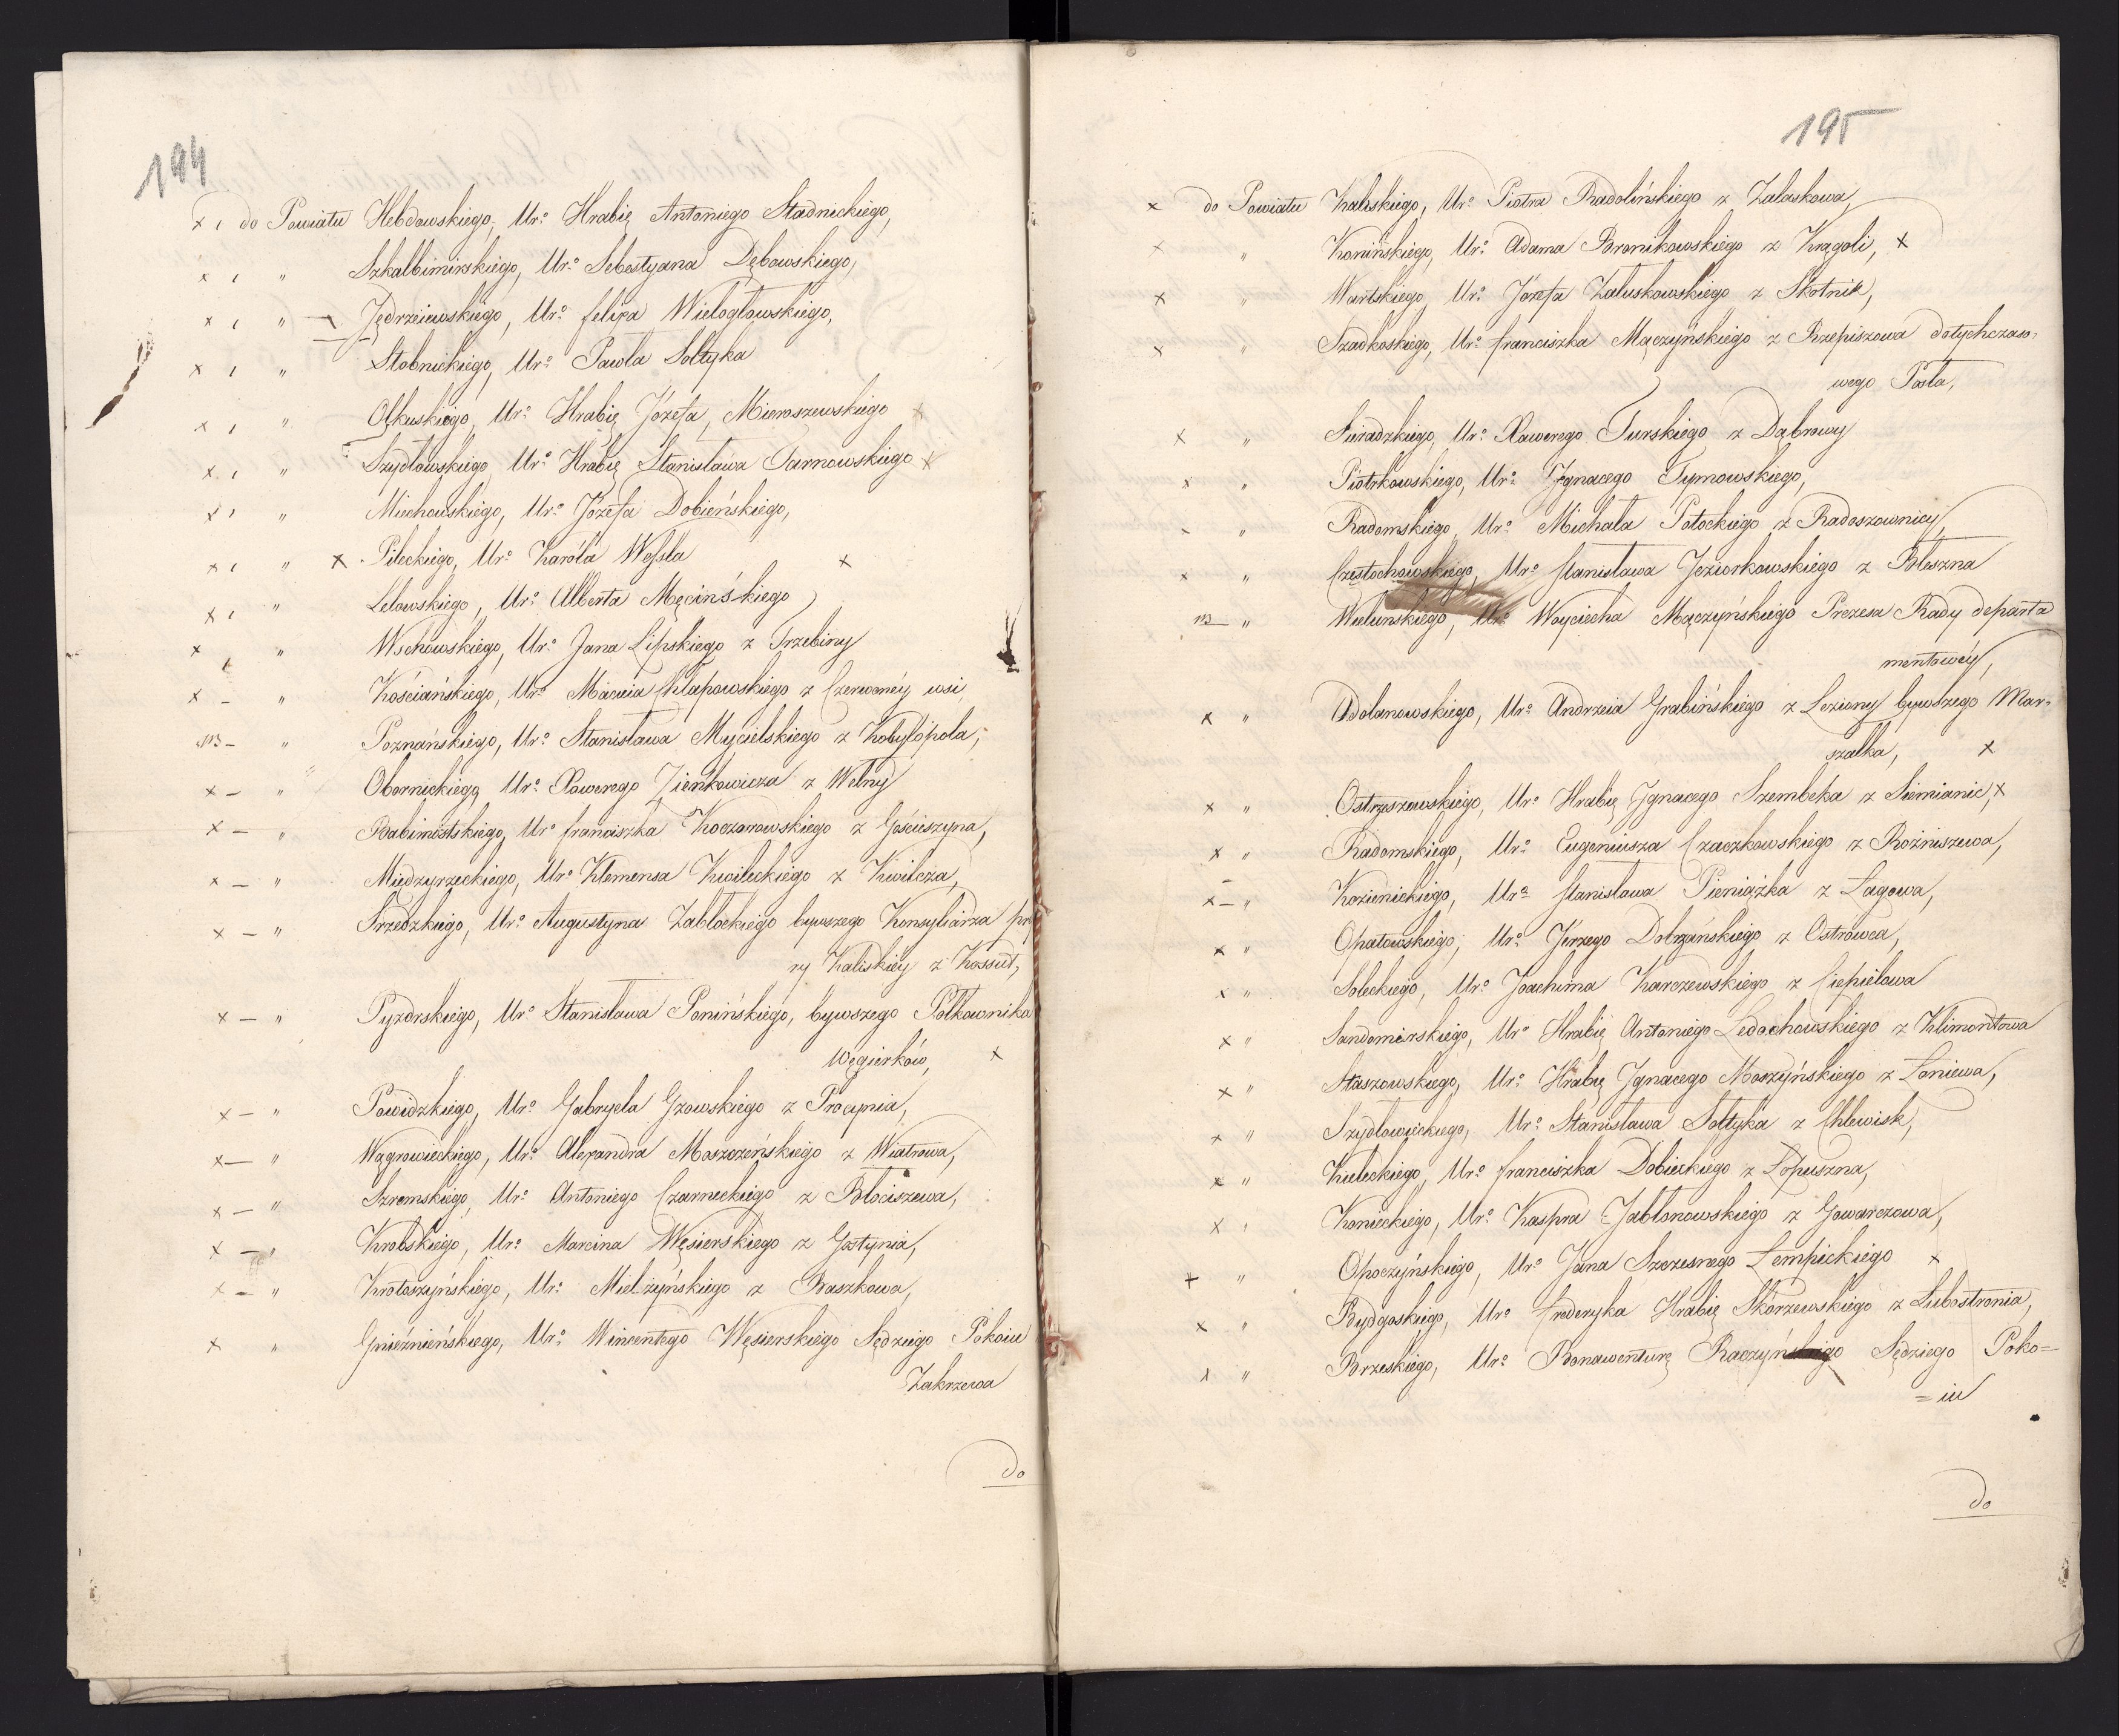 194
× , do Powiatu Hebdowskiego, Ur: Hrabię Antoniego Stadnickiego,
× , " Szkalbimirskiego, Ur: Sebestyana Dębowskiego,
× , " Jędrzeiewskiego, Ur: felixa Wielogłowskiego,
× , " Stobnickiego, Ur: Pawła Sołtyka
× , " Olkuskiego, Ur: Hrabię Józefa, Mieroszewskiego ×
× , " Szydłowskiego, Ur: Hrabię Stanisława Tarnowskiego ×
× , " Miechowskiego, Ur: Józefa Dobieńskiego,
× , " × Pileckiego, Ur: Karóla Wessla ×
× , " Lelowskiego, Ur: Alberta Męcińskiego
× " Wschowskiego, Ur: Jana Lipskiego z Trzebiny
× – " Kościańskiego, Ur: Macieia Chłapowskiego z Czerwonéy wsi,
NB – " Poznańskiego, Ur: Stanisława Mycielskiego z Kobylopola,
× – " Obornickiego, Ur: Xawerego Zienkowicza z Wełny
× – " Babimostskiego, Ur: franciszka Koczorowskiego z Gościeszyna,
× – " Międzyrzeckiego, Ur: Klemensa Kwileckiego z Kwilcza,
× – " Srzedzkiego, Ur: Augustyna Zabłockiego bywszego Konsyliarza
ry Kaliskiéy z
× – " Pyzdrskiego, Ur: Stanisława Ponińskiego, bywszego Półkownika
Węgierków, ×
× – " Powidzkiego, Ur: Gabryela Gzowskiego z Procynia,
× – " Wągrowieckiego, Ur: Alexandra Moszczeńskiego z Wiatrowa,
× – " Szremskiego, Ur: Antoniego Czarneckiego z Błociszewa,
× – " Krobskiego, Ur: Marcina Węsierskiego z Gostynia,
× – " Krotoszyńskiego, Ur: Mielżyńskiego z Baszkowa,
× " Gnieźnieńskiego, Ur: Wincentego Węsierskiego Sędziego Pokoiu
Zakrzewa
do
195
× do Powiatu Kaliskiego, Ur: Piotra Radolińskiego z Zalaskowa,
× " Konińskiego, Ur: Adama Bronikowskiego z Krągoli, ×
× " Wartskiego, Ur: Józefa Załuskowskiego z Skotnik,
× " Szadkoskiego, Ur: franciszka Mączyńskiego z Rzepiszowa dotychczaso,
wego Posła,
× " Sieradzkiego, Ur: Xawerego Turskiego z Dąbrowy
× " Piotrkowskiego, Ur: Ignacego Tymowskiego,
" Radomskiego, Ur: Michała Potockiego z Radoszownicy,
× " Częstochowskiego, Ur: Stanisława Jeziorkowskiego z Błeszna
NB – " Wielunskiego, Ur: Woyciecha Mączyńskiego Prezesa Rady departa
mentowéy,
× " Odolanowskiego, Ur: Andrzeia Grabińskiego z Leziony bywszego Mar-
szałka, ×
× " Ostrzeszowskiego, Ur: Hrabię Ignacego Szembeka z Siemianic, ×
× " Radomskiego, Ur: Eugeniusza Czaczkowskiego z Rożniszewa,
× – " Kozienickiego, Ur: Stanisława Pieniążka z Łagowa,
× " Opatowskiego, Ur: Jerzego Dobrzańskiego z Ostrówca,
× " Soleckiego, Ur: Joachima Karczewskiego z Ciepielowa
× " Sandomirskiego, Ur: Hrabię Antoniego Ledochowskiego z Klimontowa
× " Staszowskiego, Ur: Hrabię Ignacego Moszyńskiego z Łoniewa,
× " Szydłowieckiego, Ur: Stanisława Sołtyka z Chlewisk,
× " Kieleckiego, Ur: franciszka Dobieckiego z Łopuszna,
× " Konieckiego, Ur: Kaspra Jabłonowskiego z Gowarczowa,
+ " Opoczyńskiego, Ur: Jana Szczesnego Łempickiego ×
× " Bydgoskiego, Ur: frederyka Hrabię Skórzewskiego z Lubostronia,
× " Brzeskiego, Ur: Bonawenturę Raczyńskiego Sędziego Poko=
=iu
do